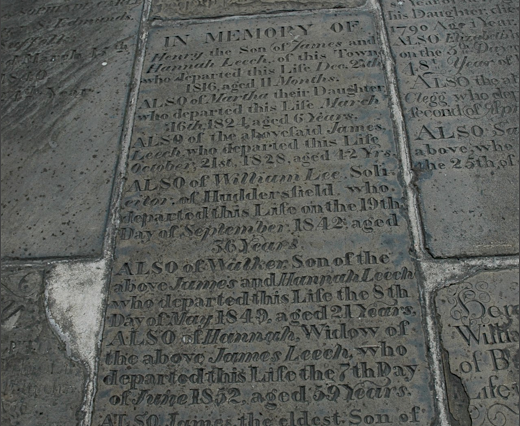 Edmund
March 15th
Year
IN MEMORY OF
Henry the Son of James and
Hannah Leech, of this Town
who departed this Life Dec. 25th
1816, aged 11 Months.
ALSO of Martha their Daughter
who departed this Life March
16th 1824, aged 6 Years.
ALSO of the abovesaid James
Leech who departed this Life
October, 21st, 1828, aged 42 Yrs.
ALSO of William Lee Soli-
citor, of Huddersfield, who
departed this Life on the 19th
Day of September, 1842: aged
36 Years.
ALSO of Walker, Son of the
above James and Hannah Leech
who departed this Life the 8th
Day of May 1849, aged 21 Years,
ALSO of Hannah, Widow of
the above James Leech, who
departed this Life the 7th Day
of June 1852, aged 59 Years.
ALSO James, the eldest Son of
his Daughter
1790 Aged 1 Year
ALSO Elizabeth
on the 5th Day
Year of
ALSO the ab
Clegg who dep
second of Apr
ALSO Sa
above, who
the 25th, of
Willia
of B
Life